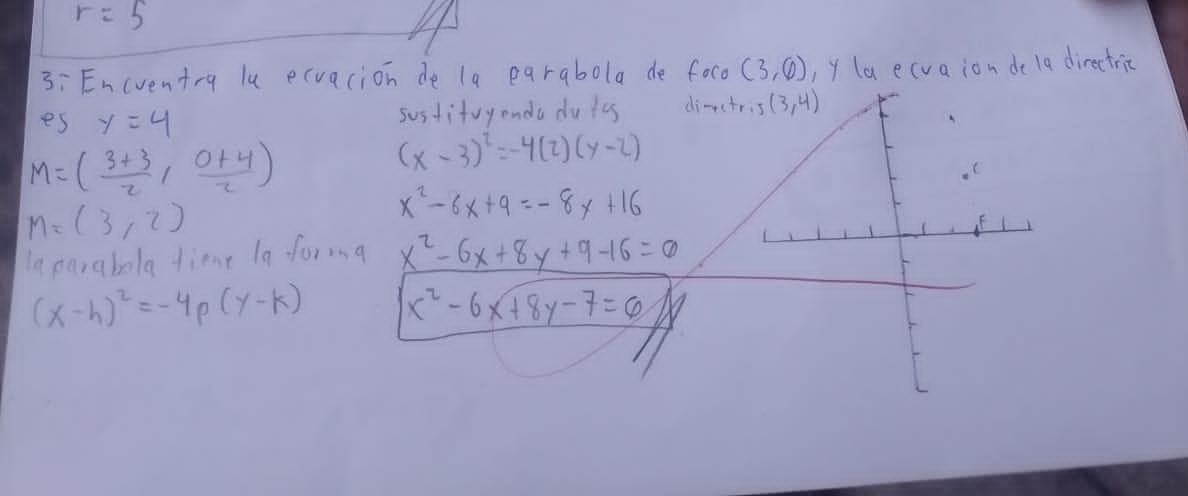 r = 5
3.- Encuentra la ecuación de la parabola de foco (3,0), y la ecuaion de la directric
es y = 4
M = ( 3+3/2 , 0+4/2 )
M = (3, 2)
la parabola tiene la forma
(x-h)² = -4p (y-k)
sustituyendo datos
(x - 3)² = -4(2)(y-2)
x² - 6x + 9 = - 8y + 16
x² - 6x + 8y + 9 - 16 = 0
x² - 6x + 8y - 7 = 0
directris (3,4)
C
F